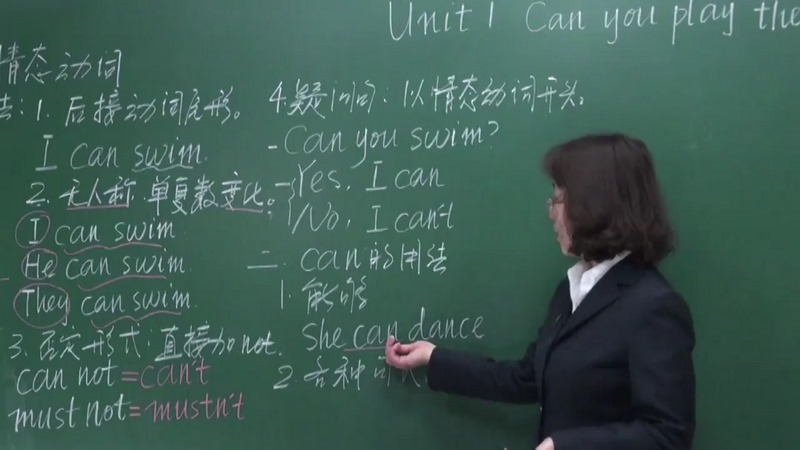 Unit 1 Can you play the
情态动词
法:1. 后接动词原形。
I can swim.
2. 无人称.单复数变化。
I can swim
He can swim
They can swim.
3. 否定形式:直接加not.
can not=can't
must not=mustn't
4.疑问句:以情态动词开头。
-Can you swim?
-Yes, I can
No, I can't
二. can的用法
1. 能够
She can dance
2. 各种